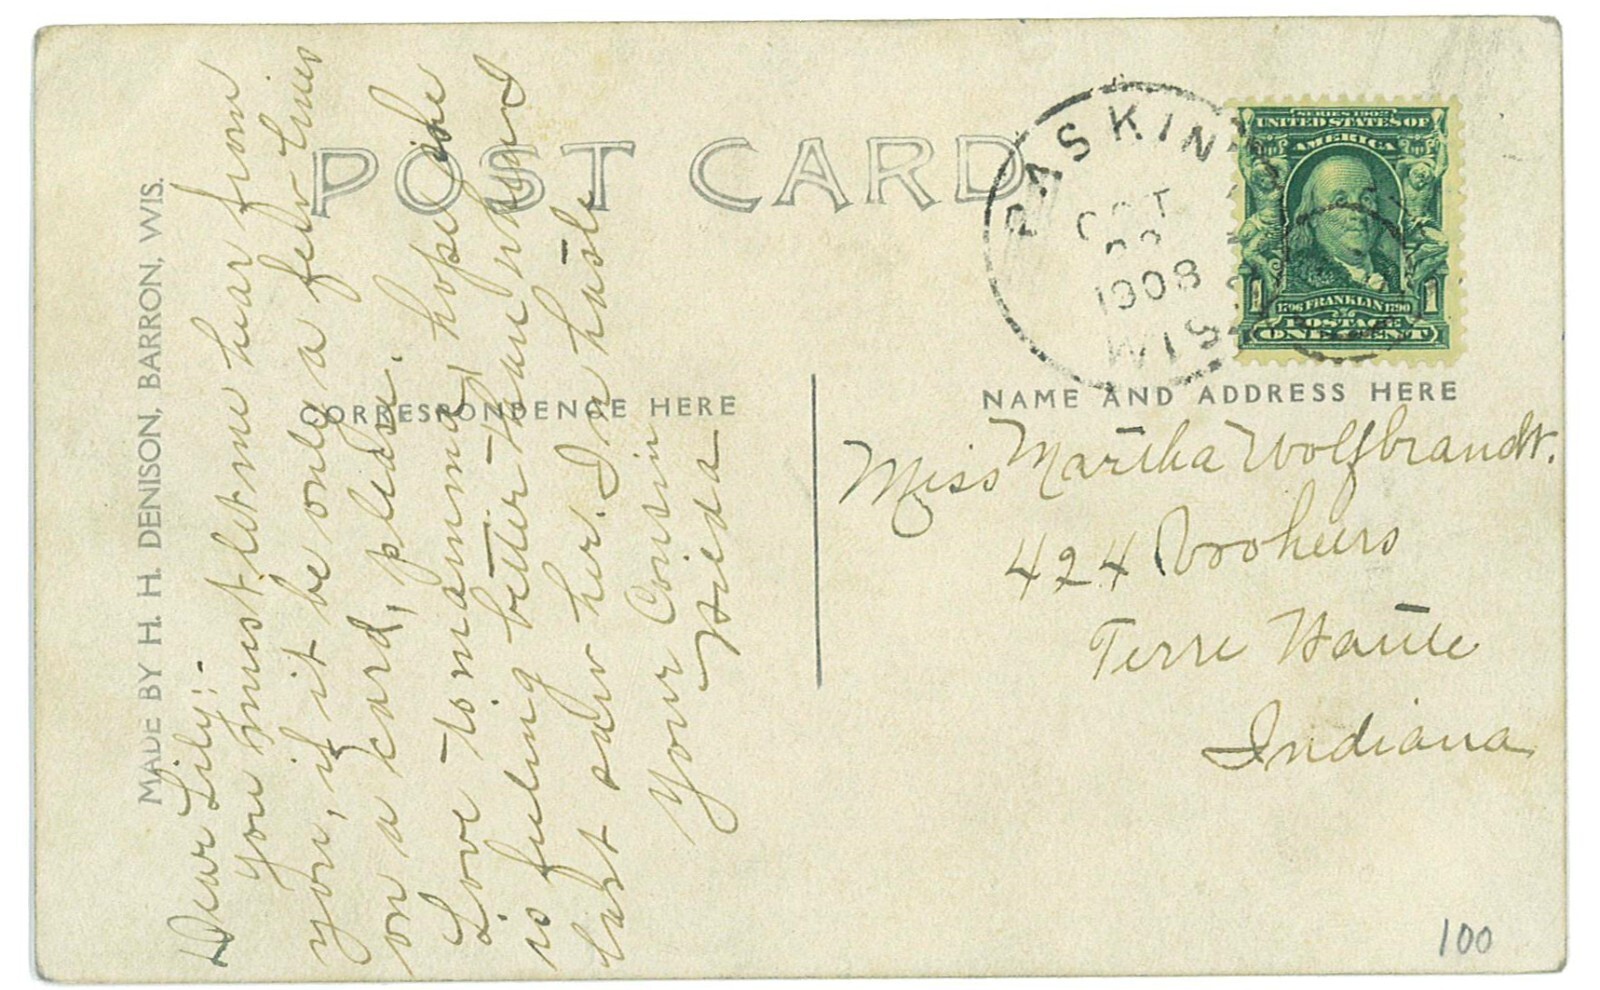 POST CARD
CORRESPONDENCE HERE
NAME AND ADDRESS HERE
MADE BY H. H. DENISON, BARRON, WIS.
Dear Lily:-
You must let me hear from
you, if it be only a few lines
on a card, please.
Love to mamma, hope she
is feeling better than when I
last saw her. In haste
Your Cousin
Hilda
OCT
1908
WIS
SERIES 1902
UNITED STATES OF
AMERICA
1706 FRANKLIN 1790
POSTAGE
1 1
ONE CENT
Miss Martha Wolfbrandt.
424
Terre Haute
Indiana
100